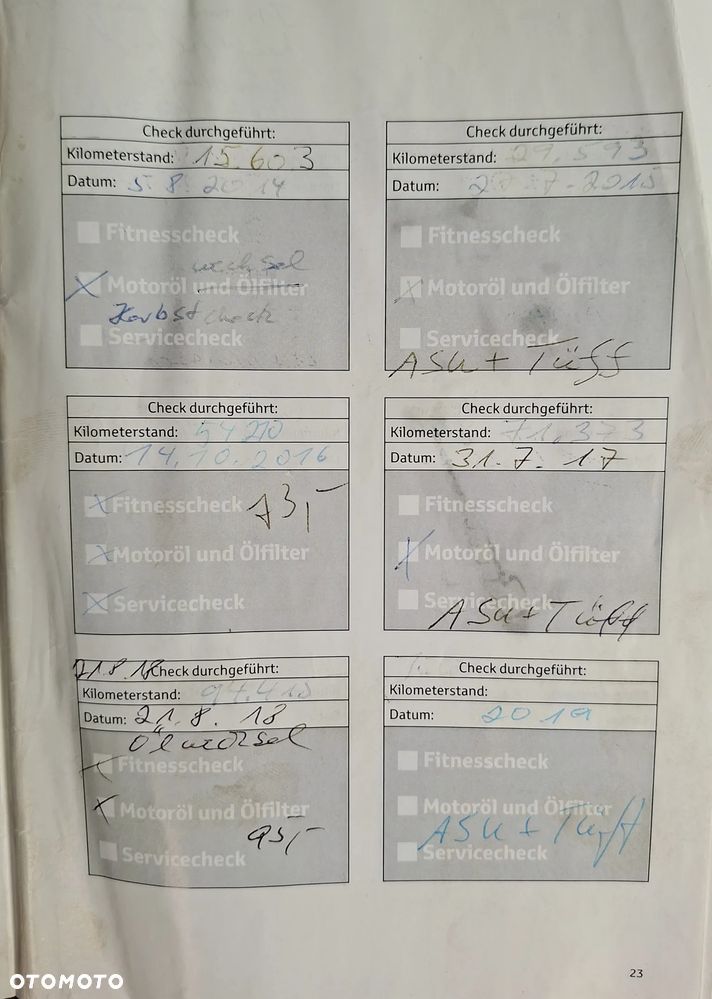 Check durchgeführt:
Kilometerstand: 15.603
Datum: 5.8.2014
Fitnesscheck
wechsel
Motoröl und Ölfilter
Herbstcheck
Servicecheck
Check durchgeführt:
Kilometerstand: 29.593
Datum: 27.7.2015
Fitnesscheck
Motoröl und Ölfilter
Servicecheck
ASU + Tüff
Check durchgeführt:
Kilometerstand: 54210
Datum: 14.10.2016
Fitnesscheck 73,-
Motoröl und Ölfilter
Servicecheck
Check durchgeführt:
Kilometerstand: 71.373
Datum: 31.7.17
Fitnesscheck
Motoröl und Ölfilter
Servicecheck
ASU + Tüff
21.8.18 Check durchgeführt:
Kilometerstand: 94.410
Datum: 21.8.18
Ölwechsel
Fitnesscheck
Motoröl und Ölfilter
95,-
Servicecheck
Check durchgeführt:
Kilometerstand:
Datum: 2019
Fitnesscheck
Motoröl und Ölfilter
ASU + Tüff
Servicecheck
23
OTOMOTO